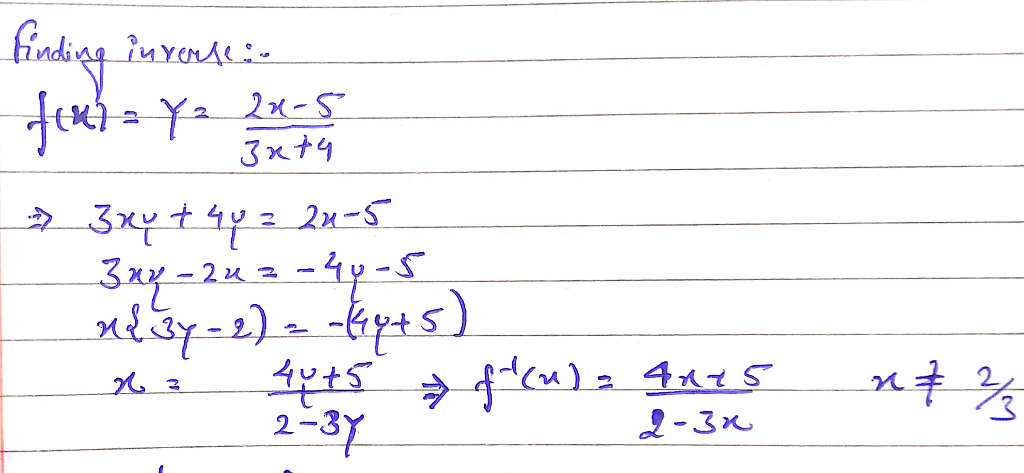 Finding inverse :-
f(x) = Y = (2x-5)/(3x+4)
⇒ 3xy + 4y = 2x-5
3xy - 2x = -4y-5
x{3y-2) = -(4y+5)
x = (4y+5)/(2-3y) ⇒ f⁻¹(x) = (4x+5)/(2-3x) x ≠ 2/3